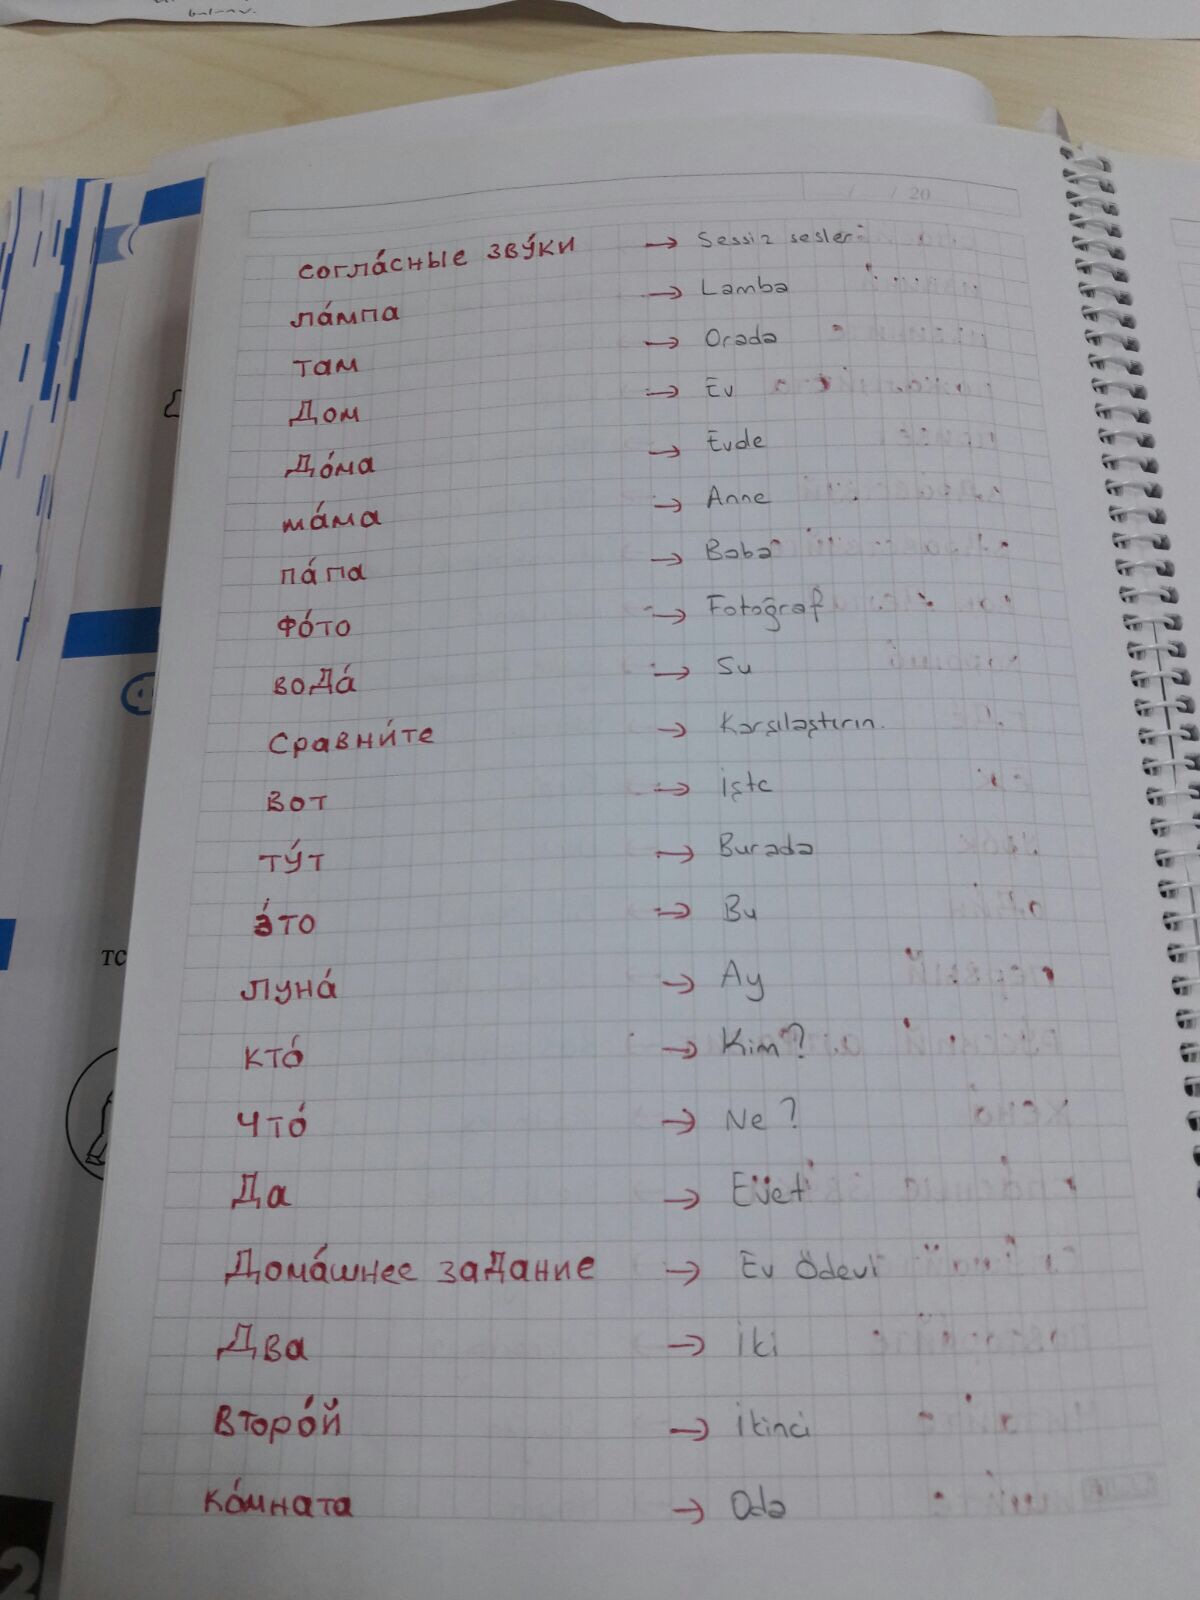 / / 20
согла́сные зву́ки → Sessiz sesler
ла́мпа → Lamba
там → Orada
Дом → Ev
До́ма → Evde
ма́ма → Anne
па́па → Baba
фо́то → Fotoğraf
воДа́ → Su
Сравни́те → Karşılaştırın.
вот → İşte
ту́т → Burada
э́то → Bu
луна́ → Ay
кто́ → Kim?
Что́ → Ne?
Да → Evet
Дома́шнее заДание → Ev Ödevi
Два → İki
Второ́й → İkinci
ко́мната → Oda
тс
2